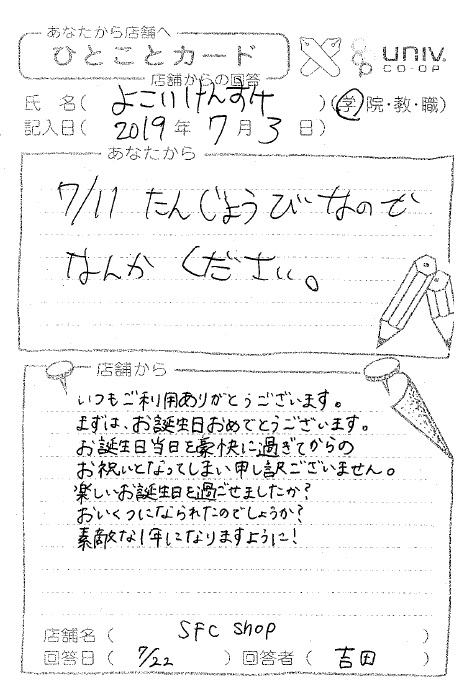 あなたから店舗へ
ひとことカード
店舗からの回答
UNIV.
CO-OP
氏 名( よこいけんすけ )(学院・教・職)
記入日( 2019 年 7 月 3 日)
あなたから
7/11 たんじょうびなので
なんか ください。
店舗から
いつもご利用ありがとうございます。
まずは、お誕生日おめでとうございます。
お誕生日当日を豪快に過ぎてからの
お祝いとなってしまい申し訳ございません。
楽しいお誕生日を過ごせましたか?
おいくつになられたのでしょうか?
素敵な1年になりますように!
店舗名( SFC shop )
回答日( 7/22 )回答者( 吉田 )